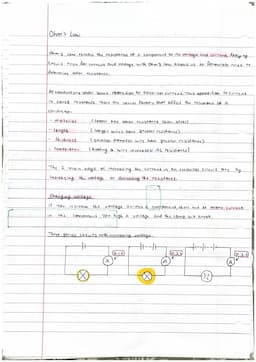 Ohm's Law
Ohm's law relates the resistance of a component to its voltage and current. Applying
circuit rules for current and voltage with Ohm's law allows us to formulate rules to
determine total resistance.
All conductors show some resistance to electrical current. This opposition to current
is called resistance. There are several factors that affect the resistance of a
conductor:
- material (copper has lower resistance than steel)
- length (longer wires have greater resistance)
- thickness (smaller diameter wires have greater resistance)
- temperature (heating a wire increases its resistance)
The 2 main ways of increasing the current in an electrical circuit are by
increasing the voltage or decreasing the resistance.
Changing voltage
If you increase the voltage across a component, there will be more current
in the component. Too high a voltage and the lamp will break.
Three series circuits with increasing voltage
A
A
A